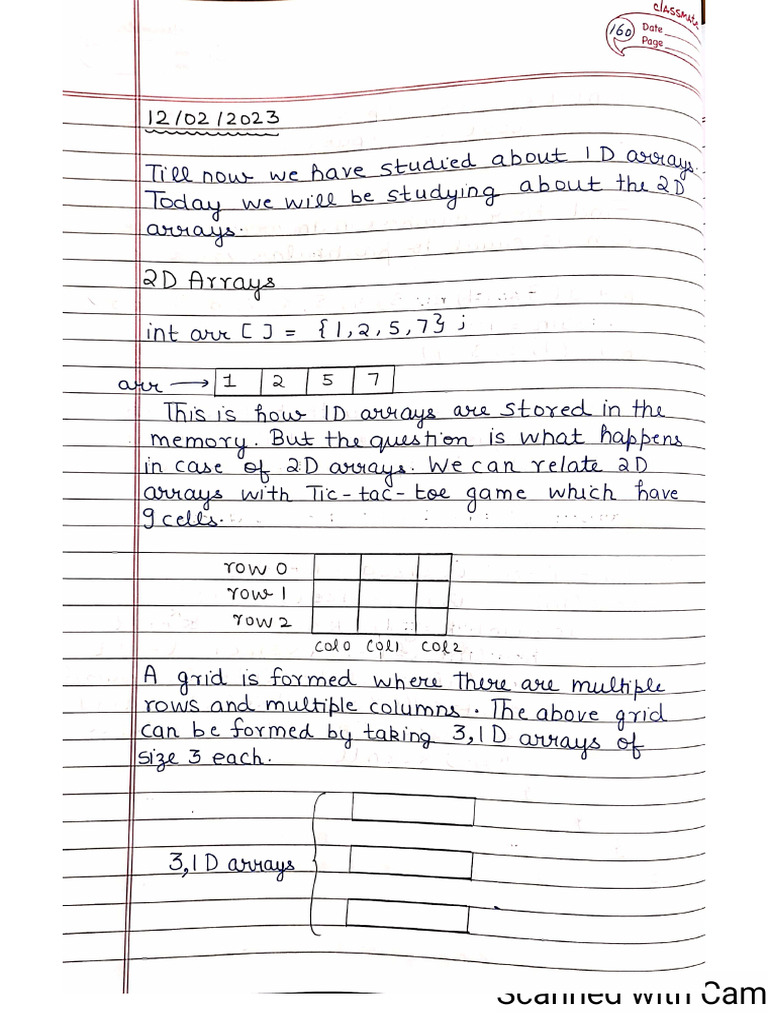 classmate
160
Date
Page
12/02/2023
Till now we have studied about 1D arrays.
Today we will be studying about the 2D
arrays.
2D Arrays
int arr [] = {1,2,5,7};
arr → 1 2 5 7
This is how 1D arrays are stored in the
memory. But the question is what happens
in case of 2D arrays. We can relate 2D
arrays with Tic-tac-toe game which have
9 cells.
row 0
row 1
row 2
col0 col1 col2
A grid is formed where there are multiple
rows and multiple columns. The above grid
can be formed by taking 3,1D arrays of
size 3 each.
3,1D arrays
Scanned with Cam